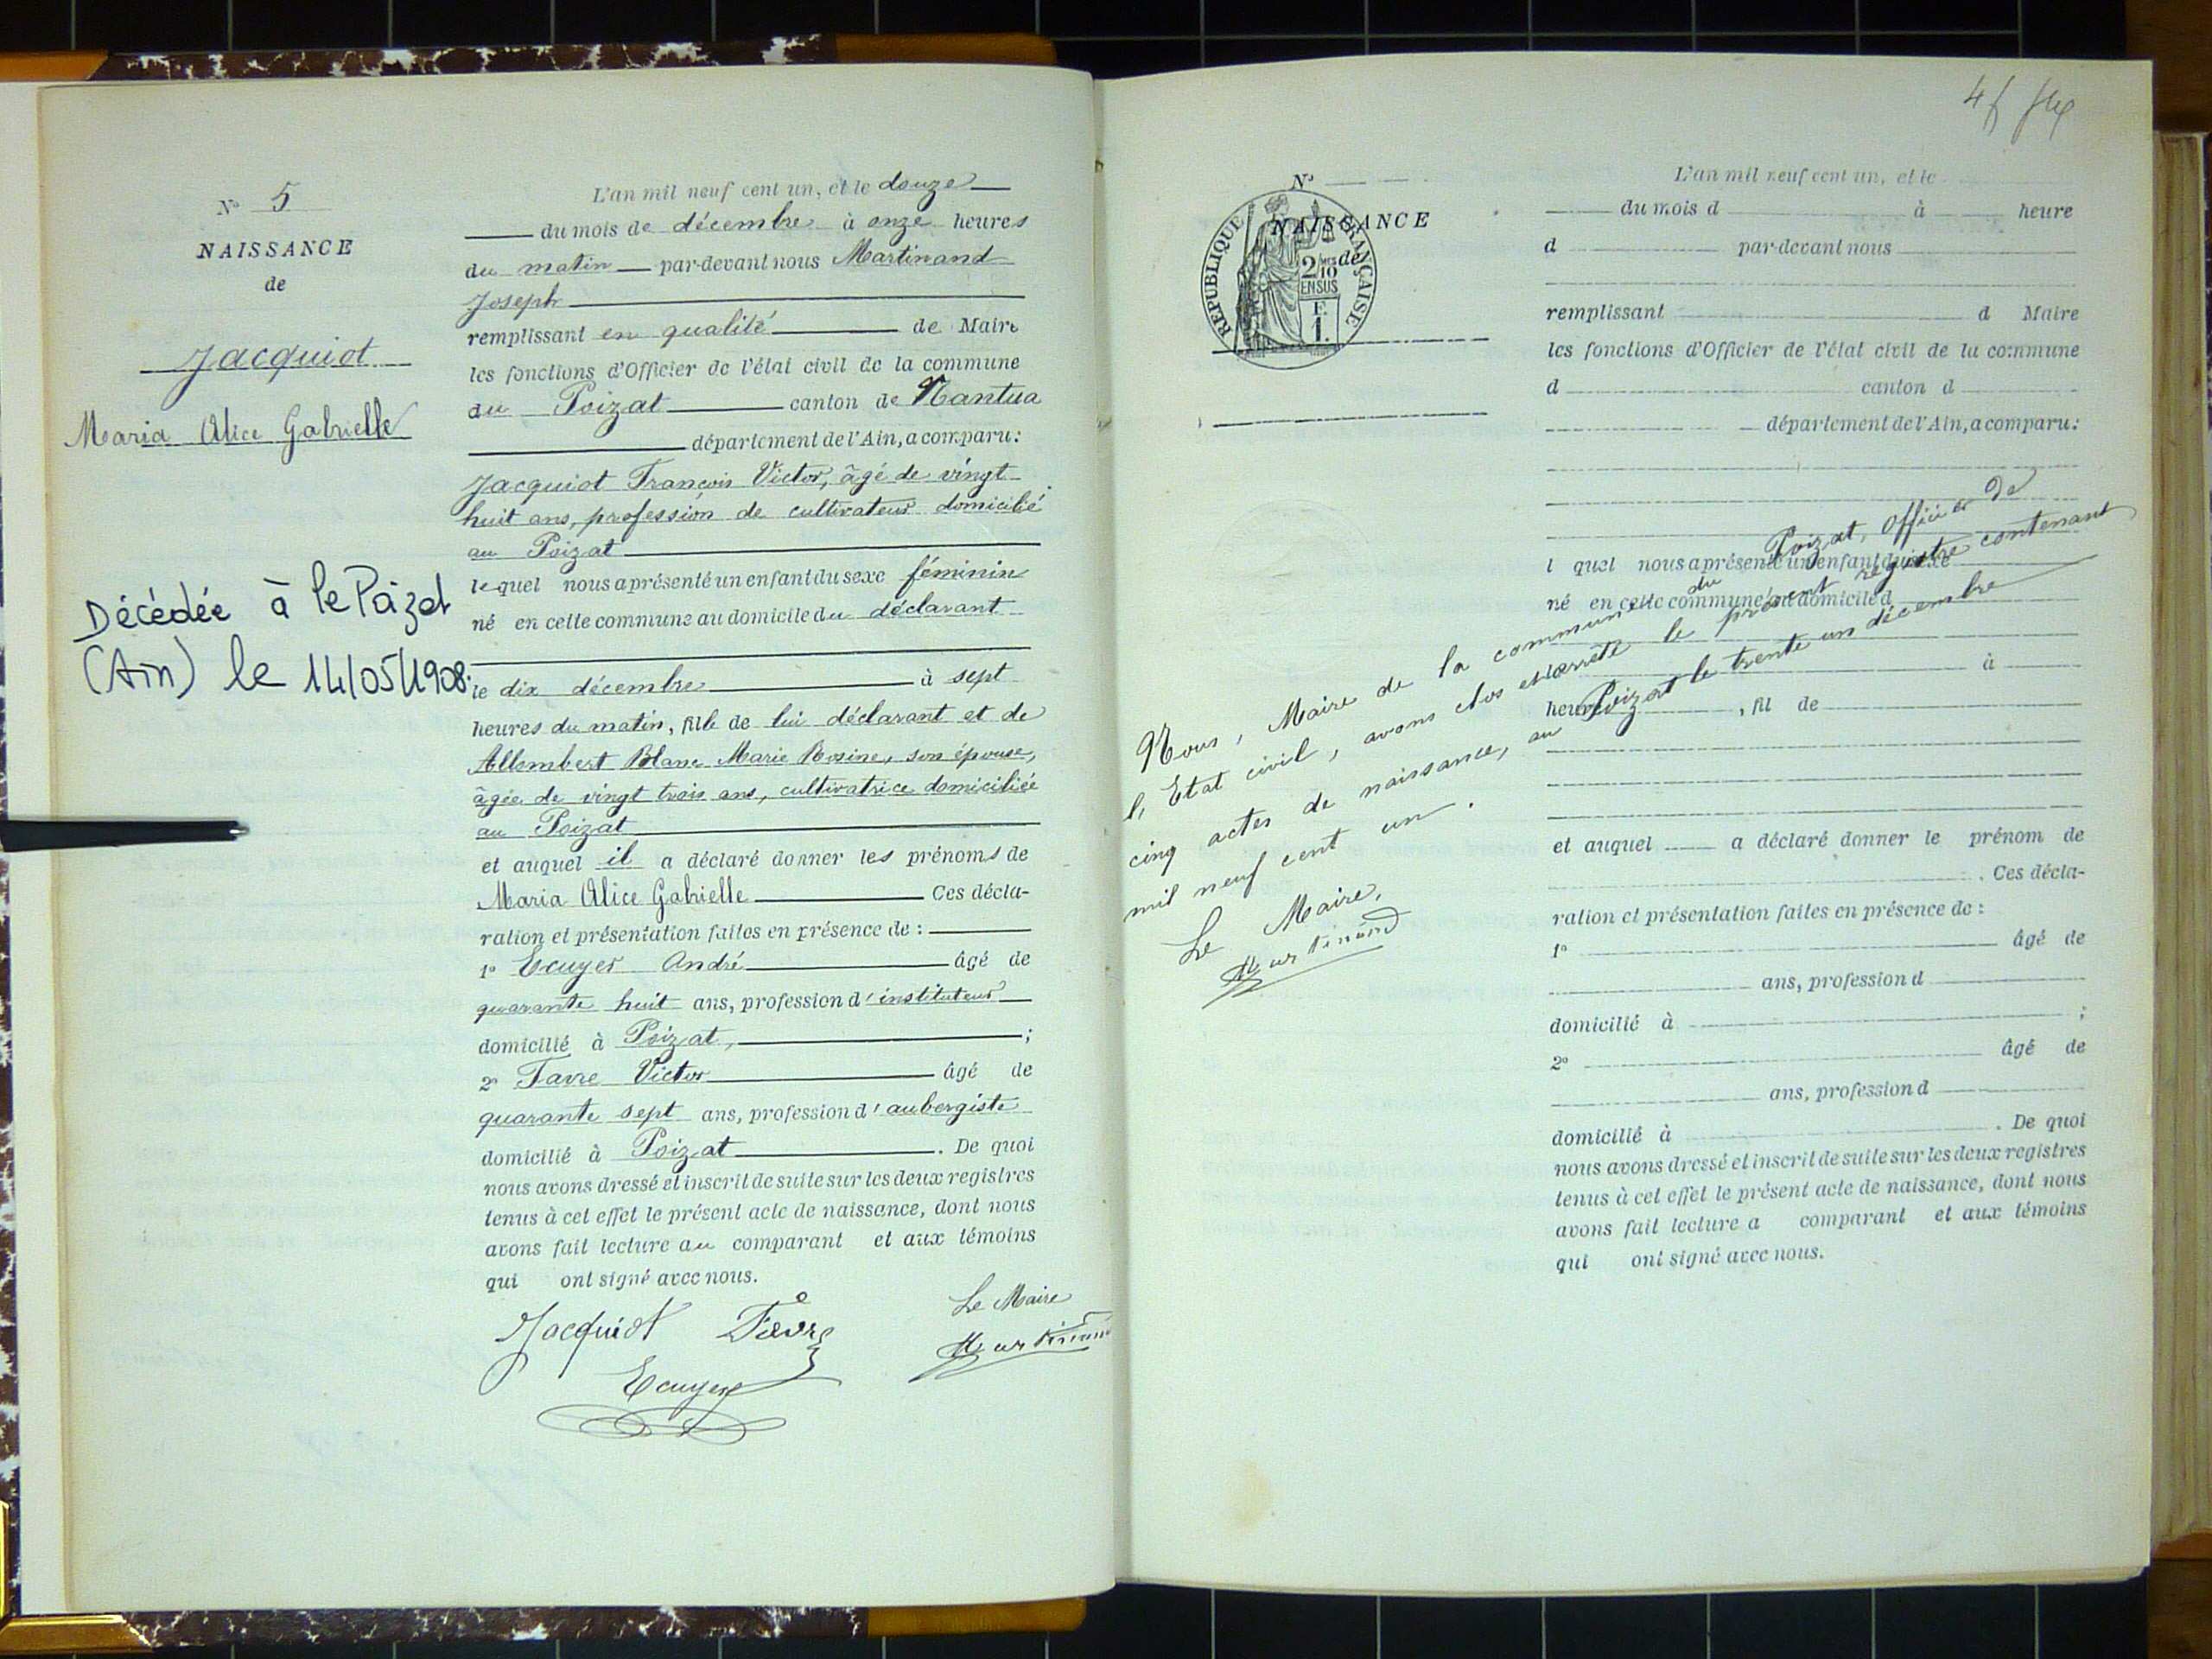 N° 5
NAISSANCE
de
Jacquiot
Maria Alice Gabrielle
Décédée à le Poizat
(Ain) le 14/05/1908.
L'an mil neuf cent un, et le douze
du mois de décembre à onze heures
du matin par-devant nous Martinand
Joseph
remplissant en qualité de Maire
les fonctions d'Officier de l'état civil de la commune
du Poizat canton de Nantua
département de l'Ain, a comparu :
Jacquiot François Victor, âgé de vingt
huit ans, profession de cultivateur domicilié
au Poizat
lequel nous a présenté un enfant du sexe féminin
né en cette commune au domicile du déclarant
le dix décembre à sept
heures du matin, fille de lui déclarant et de
Allombert Blanc Marie Rosine, son épouse,
âgée de vingt trois ans, cultivatrice domiciliée
au Poizat
et auquel il a déclaré donner les prénoms de
Maria Alice Gabrielle Ces décla-
ration et présentation faites en présence de :
1° Ecuyer André âgé de
quarante huit ans, profession d'instituteur
domicilié à Poizat, ;
2° Favre Victor âgé de
quarante sept ans, profession d'aubergiste
domicilié à Poizat . De quoi
nous avons dressé et inscrit de suite sur les deux registres
tenus à cet effet le présent acte de naissance, dont nous
avons fait lecture au comparant et aux témoins
qui ont signé avec nous.
Jacquiot Favre
Ecuyer
Le Maire
Martinand
N°
NAISSANCE
de
REPUBLIQUE FRANÇAISE
2/10 mes
EN SUS
F.
1.
L'an mil neuf cent un, et le
du mois d à heure
d par-devant nous
remplissant d Maire
les fonctions d'Officier de l'état civil de la commune
d canton d
département de l'Ain, a comparu :
l quel nous a présenté un enfant du sexe
né en cette commune au domicile d
à
heure , fil de
et auquel a déclaré donner le prénom de
. Ces décla-
ration et présentation faites en présence de :
1° âgé de
ans, profession d
domicilié à ;
2° âgé de
ans, profession d
domicilié à . De quoi
nous avons dressé et inscrit de suite sur les deux registres
tenus à cet effet le présent acte de naissance, dont nous
avons fait lecture a comparant et aux témoins
qui ont signé avec nous.
Nous, Maire de la commune du Poizat, Officier de
l'Etat civil, avons clos et arrêté le présent registre contenant
cinq actes de naissance, au Poizat le trente un décembre
mil neuf cent un.
Le Maire,
Martinand